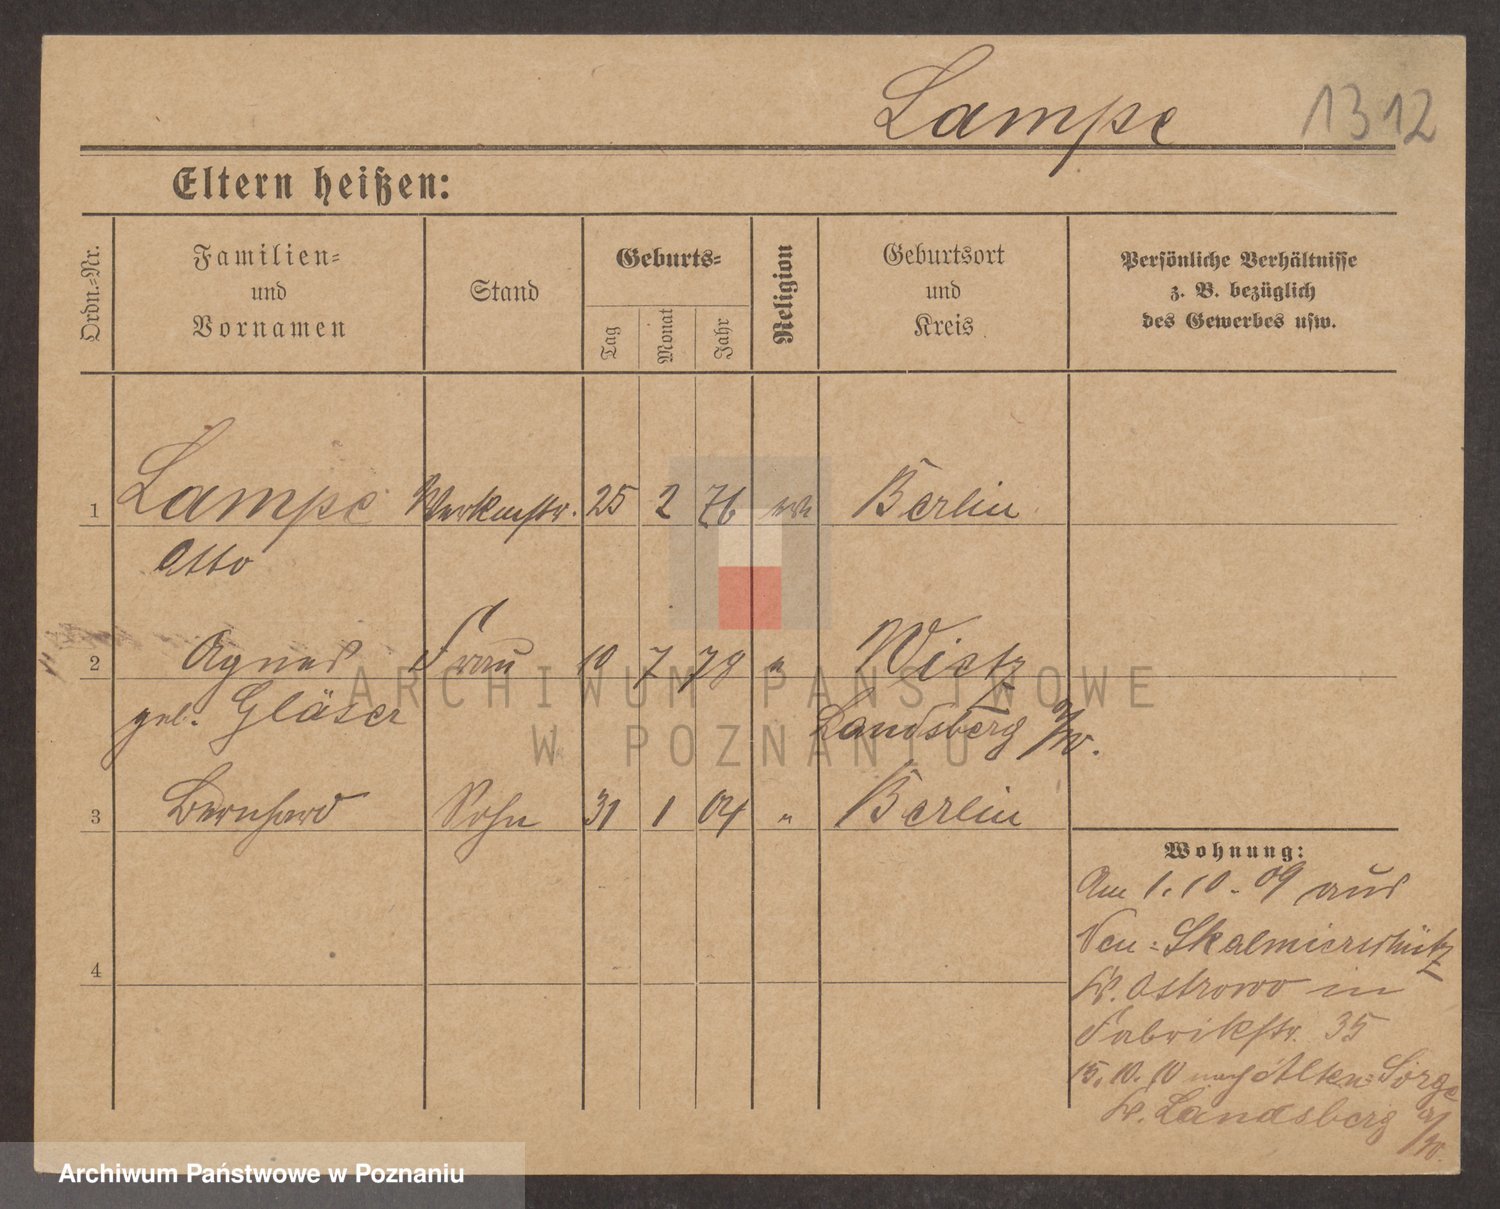 Lampe 1312
Eltern heißen:
Ordn.-Nr.
Familien-
und
Vornamen
Stand
Geburts-
Tag
Monat
Jahr
Religion
Geburtsort
und
Kreis
Persönliche Verhältnisse
z. B. bezüglich
des Gewerbes usw.
1 Lampe Werkmstr. 25 2 76 ev. Berlin
Otto
2 Agnes Frau 10 7 78 " Vietz
geb. Gläser Landsberg a/W.
3 Bernhard Sohn 31 1 04 " Berlin
4
Wohnung:
Am 1.10.09 aus
Neu-Skalmierschütz
Kr. Ostrowo in
Fabrikstr. 35
15.10.10 nach Alten-Sorge
Kr. Landsberg a/W.
ARCHIWUM PAŃSTWOWE
W POZNANIU
Archiwum Państwowe w Poznaniu